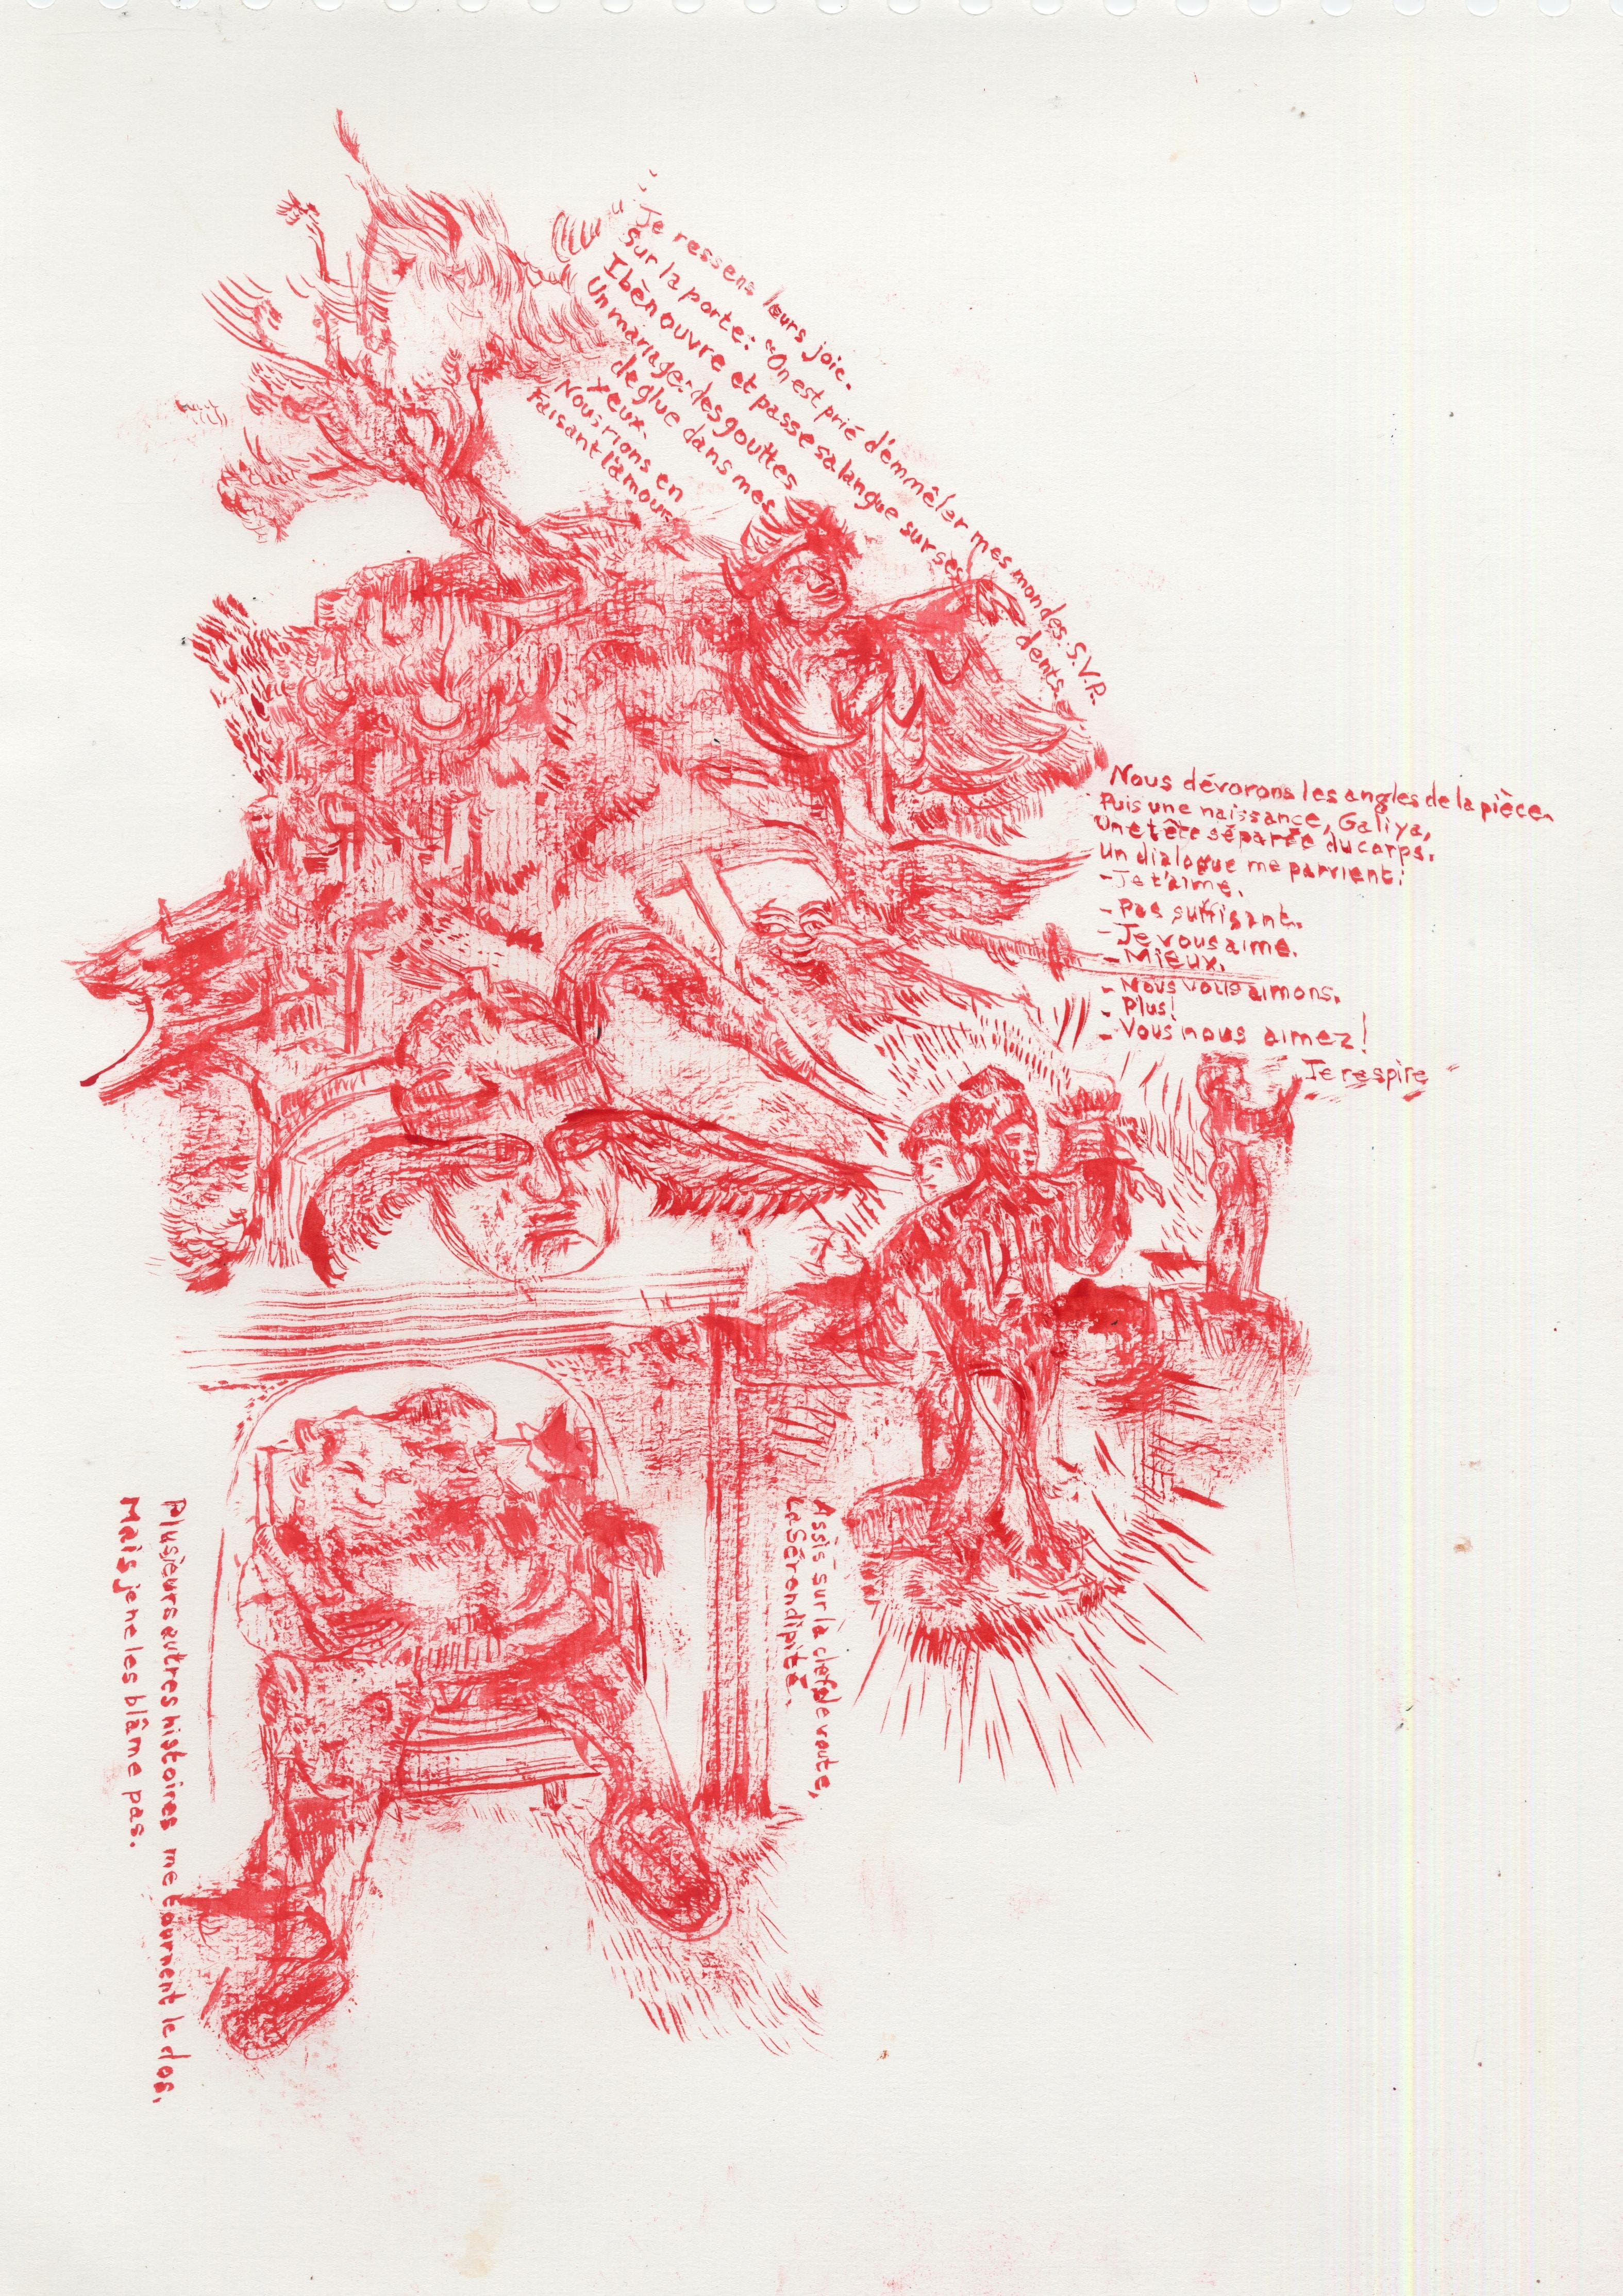 Je ressens leurs joie.
Sur la porte: "On est prié d'émmêler mes mondes. S.V.P.
Ibèn ouvre et passe sa langue sur ses dents.
Un mariage: des gouttes
de glue dans mes
yeux.
Nous rions en
Faisant l'amour.
Nous dévorons les angles de la pièce.
Puis une naissance, Galiya,
Une tête séparée du corps.
Un dialogue me parvient:
- Je t'aime.
- Pas suffisant.
- Je vous aime.
- Mieux.
- Nous vous aimons.
- Plus!
- Vous nous aimez!
Je respire
Assis sur la clef de voute,
La Sérendipité.
Plusieurs autres histoires me tournent le dos,
Mais je ne les blâme pas.